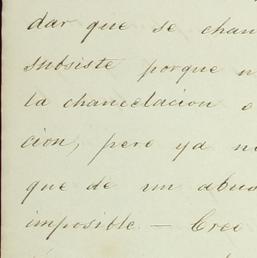 dar que se chan
subsiste porque n
la chancelacion o
cion, pero ya n
que de un abus
imposible. — Creo